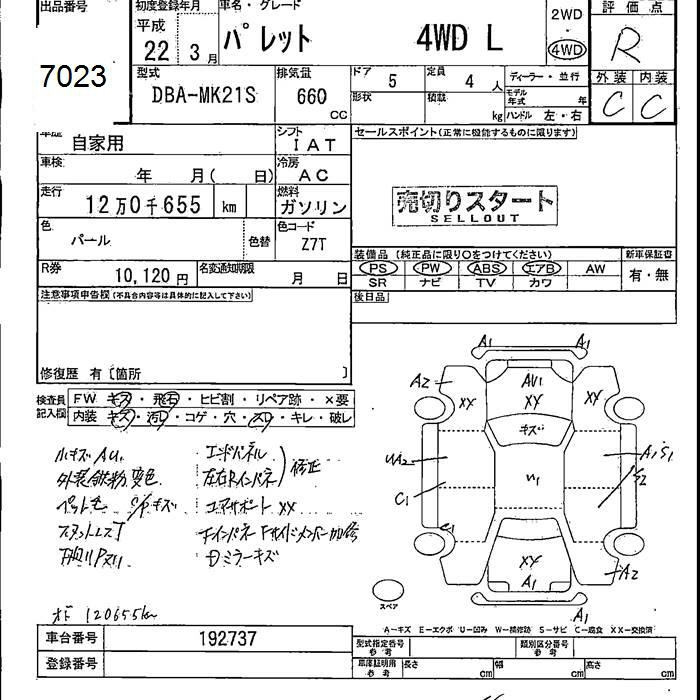 出品番号 初度登録年月 車名・グレード 評価点
平成 2WD
22 3月 パレット 4WD L 4WD R
7023 型式 排気量 ドア 5 定員 4人 ディーラー・並行 外装 内装
DBA-MK21S 660 CC 形状 積載 kg モデル年式 年 C C
ハンドル 左・右
車歴 自家用 シフト IAT セールスポイント(正常に機能するものに限ります)
車検 年 月( 日) 冷房 AC
走行 12万0千655 km 燃料 ガソリン 売切りスタート
SELLOUT
色 パール 色替 色コード Z7T
装備品 (純正品に限り○をつけてください) 新車保証書
R券 10,120円 名変通知期限 月 日 PS PW ABS エアB AW 有・無
SR ナビ TV カワ
注意事項申告欄(不具合内容等は具体的に記入して下さい) 後日品
修復歴 有〔箇所 〕
検査員記入欄 FW キズ・飛石・ヒビ割・リペア跡・×要
内装 キズ・汚れ・コゲ・穴・スレ・キレ・破レ
A1 A1
A2 XX AU1 XX XX
キズ
W2 W1 A1 S1
C1 S2
C1
XX A1 A2
A1
小キズ AU ・エンドパネル
外装鉄粉 変色 ・左右Rインパネ 修正
ペット毛 S/Pキズ ・コアサポート XX
・Fインパネ Fサイドメンバー
・Dミラーキズ
スペア
オド 120655km
A-キズ E-エクボ U-凹み W-補修跡 S-サビ C-腐食 XX-交換済
車台番号 192737 型式指定番号 参考 類別区分番号 参考
登録番号 車庫証明用 参考 長さ cm 幅 cm 高さ cm